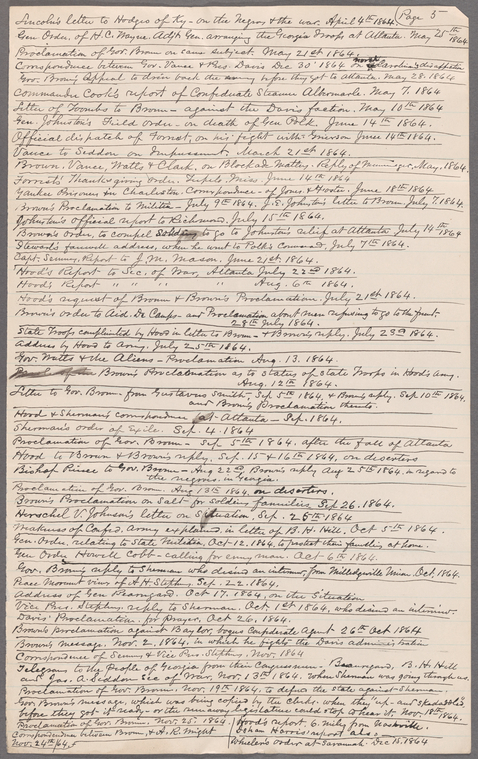 Lincoln's letter to Hodges of Ky - on the Negroes & the war. April 4th 1864. (Page 5
Gen. Order, of H.C. Wayne. Adjt Gen. arranging the Georgia Troops at Atlanta. May 25th 1864
Proclamation of Gov. Brown on same subject. May 21st 1864.
Correspondence between Gov. Vance & Pres. Davis Dec 30th 1864. on North Carolina's disaffection
Gov. Brown's appeal to drive back the enemy before they get to Atlanta. May 28. 1864.
Commander Cook's report of Confederate Steamer Albermarle. May 7. 1864
Letter of Toombs to Brown - against the Davis faction. May 10th 1864
Gen. Johnston's Field order on death of Gen Polk. June 14th 1864.
Official dispatch of Forrest, on his fight with Grierson June 14th 1864.
Vance to Seddon on Impressment, March 21st 1864.
Brown, Vance, Watts, & Clark, on Blockade Matters. Reply of Memminger, May. 1864.
Forrest's Thanksgiving Order. Tupelo Miss. June 14th 1864
Yankee Prisoners in Charleston. Correspondence - of Jones & Foster. June 18th 1864.
Brown's Proclamation to Militia - July 9th 1864. J.E. Johnston's letter to Brown July 7. 1864.
Johnston's Official report to Richmond, July 15th 1864.
Brown's order, to compel Soldiers to go to Johnston's relief at Atlanta July 14th 1864
Steward's farewell address, when he went to Polk's Command, July 7th 1864.
Capt. Semmes, Report to J.M. Mason. June 21st 1864.
Hood's Report to Sec. of War, Atlanta July 22nd 1864.
Hood's Report " " " " " Aug. 6th 1864.
Hood's request of Brown & Brown's Proclamation. July 21st 1864.
Brown's order to Aid. De Camps - and Proclamation about men refusing to go to the front.
28th July 1864.
State Troops complimented by Hood in letter to Brown - & Brown's reply. July 23rd 1864.
Address by Hood to Army. July 25th 1864.
Gov. Watts & the Aliens - Proclamation Aug. 13. 1864.
Brown's Proclamation as to status of State Troops in Hood's Army.
Aug. 12th 1864.
Letter to Gov. Brown - from Gustavus Smith - Sep. 5th 1864, & Brown's reply, Sep 10th 1864.
and Brown's Proclamation thereto.
Hood & Sherman's correspondence at Atlanta - Sep. 1864.
Sherman's order of Exile. Sep. 4. 1864
Proclamation of Gov. Brown - Sep. 5th 1864. after the fall of Atlanta
Hood to Brown & Brown's reply. Sep. 15 & 16th 1864, on deserters
Bishop Pierce to Gov. Brown - Aug 22nd, Brown's reply Aug 25th 1864. in regard to
the negroes in Georgia.
Proclamation of Gov. Brown. Aug 13th 1864, on deserters.
Brown's Proclamation on Salt - for Soldiers families, Sep 26. 1864.
Herschel V. Johnson's letter on Situation Sep. 25th 1864
Weakness of Cafed. Army explained in letter of B.H. Hill, Oct 5th 1864
Gen. Order, relating to State Militia, Oct. 12. 1864, to protect their families at home.
Gen Order Howell Cobb - calling for every man. Oct. 6th 1864.
Gov. Brown's reply to Sherman who desired an interview, from Milledgeville Union. Oct. 1864.
Peace Movement views of A.H. Stephens, Sep. 22. 1864.
Address of Gen Beauregard. Oct 17. 1864, on the Situation
Vice Pres. Stephens, reply to Sherman. Oct. 1st 1864, who desired an interview.
Davis' Proclamation for prayer, Oct 26. 1864.
Brown's Proclamation against Baylor, bogus Confederate Agent 26th Oct 1864
Brown's message. Nov. 2. 1864, in which he fights the Davis administration
Correspondence of Semmes & Vice Pres. Stephens, Nov. 1864
Telegrams to the People of Georgia from their Congressmen - Beauregard, B.H. Hill
and Jas. A. Seddon Sec of War. Nov. 13th 1864. when Sherman was going through us.
Proclamation of Gov. Brown. Nov. 19th 1864, to defend the state against Sherman.
Gov. Brown's message, which was being copied by the Clerks when they up - and "skedaddled"
before they got it ready - or the runaway legislature could stop & hear it. Nov. 18th 1864.
Proclamation of Gov. Brown. Nov. 25. 1864
Correspondence between Brown, & A.R. Wright
Nov. 24th/64.
Hood's report 6. miles from Nashville.
Isham Harris' report also:
Wheeler's order at Savannah. Dec 15. 1864